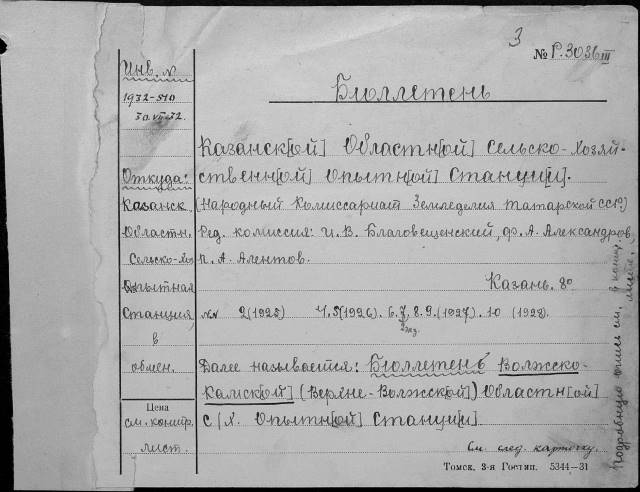 3
№ Р.3036 III
Инв. №
1932-510
30.VII.32.
Бюллетень
Казанск[ой] Областн[ой] Сельско-Хозяй-
ственн[ой] Опытн[ой] Станци[и].
(Народный Комиссариат Земледелия Татарской ССР.)
Ред. комиссия: И. В. Благовещенский, Ф. А. Александров,
П. А. Алентов.
Казань. 8º
№№ 2(1925) 4.5(1926). 6.7, 8.9.(1927). 10 (1928).
2 экз.
Далее называется: Бюллетень Волжско-
Камск[ой] (Верхне-Волжской]) Областн[ой]
С[Х. Опытн[ой] Станци[и].
См. след. карточку.
Откуда:
Казанск.
Областн.
Сельско-Хоз
Опытная
Станция,
в
обмен.
Цена
см. контр.
лист.
Подробную опись см. в контр. листе.
Томск, 3-я Гостип. 5344—31